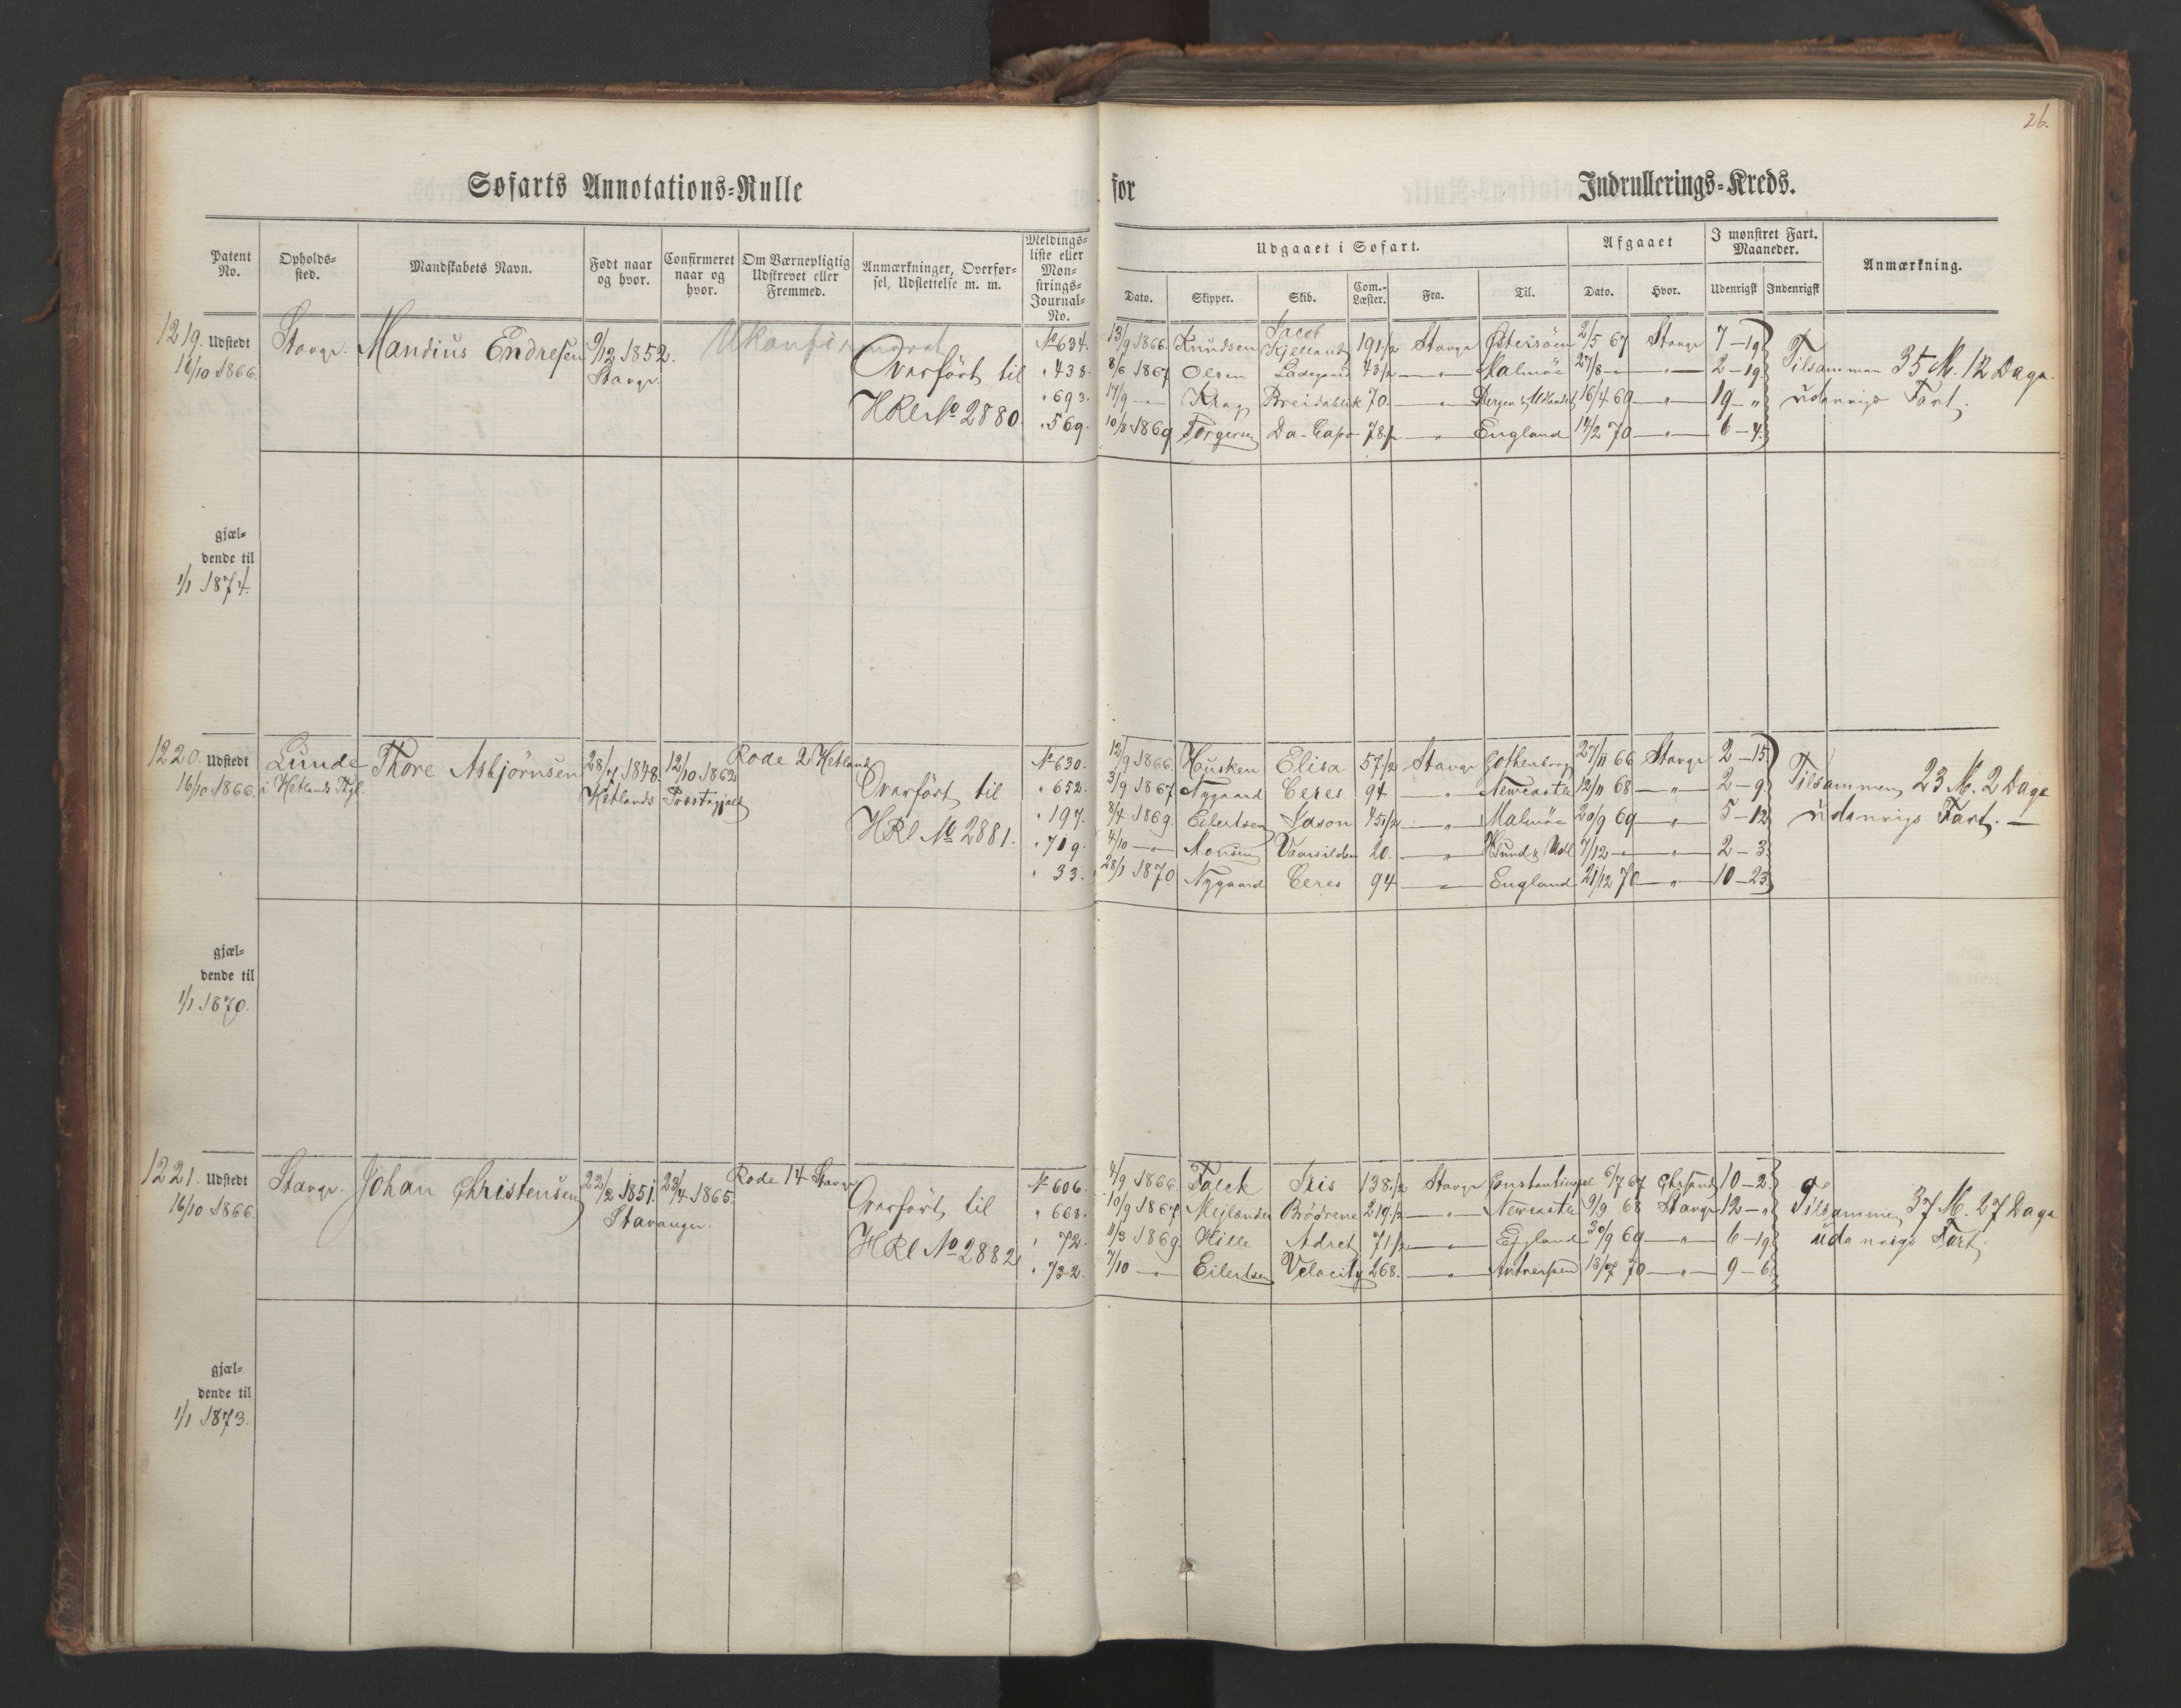 26.
Søfarts Annotations-Rulle for Indrullerings-Kreds.
Patent No.
Opholds-sted.
Mandskabets Navn.
Født naar og hvor.
Confirmeret naar og hvor.
Om Værnepligtig Udskrevet eller Fremmed.
Anmærkninger, Overfør-sel, Udslettelse m. m.
Meldings-liste eller Mon-strings-Journal-No.
Udgaaet i Søfart.
Dato. Skipper. Skib. Com.-Læster. Fra. Til.
Afgaaet
Dato. Hvor.
I mønstret Fart. Maaneder.
Udenrigsk Indenrigsk
Anmærkning.
1219. Udstedt
16/10 1866.
Stavgr. Mandius Endresen 9/12 1852. Stavgr. Ukonfirmeret
Overført til
HRl No 2880.
No 634. 13/9 1866. Knudsen Jacob Kjelland 191 1/2 Stavgr Østersöen 2/5 67 Stavgr 7-19
" 438. 8/6 1867 Olsen Ladegaard 43 1/2 — " — Malmöe 27/8 — — " — 2-19
" 693. 17/9 — " — Krag Breidablik 70. — " — Bergen & Udlandet 16/4 69 — " — 19 - "
" 569. 10/8 1869 Torgersen Da-Capo 78 1/2 — " — England 14/2 70 — " — 6-4.
Tilsammen 35 M. 12 Dage
udenrigs Fart.
gjæl-
dende til
1/1 1874.
1220. Udstedt
16/10 1866.
Lunde
i Hetlands Thgl.
Thore Asbjörnsen 28/7 1848. 12/10 1862 Rode 2 Hetland
Hetlands Præstegjæld
Overført til
HRl No 2881.
No 630. 12/9 1866. Hausken Elisa 57 1/2 Stavgr Gothenborg 27/11 66 Stavgr 2-15
" 652. 3/9 1867 Nygaard Ceres 94 — " — Newcastle 12/11 68 — " — 2-9
" 197. 8/4 1869. Eilertsen Jason 151 1/2 — " — Malmöe 20/9 69 — " — 5-12
" 719. 4/10 — " — Monsen Vaarsilden 20. — " — Hsund & Udl 7/12 — " — 2-3.
" 33. 28/1 1870 Nygaard Ceres 94 — " — England 21/12 70 — " — 10-23
Tilsammen 23 M. 2 Dage
udenrigs Fart. —
gjæl-
dende til
1/1 1870.
1221. Udstedt
16/10 1866.
Stavgr. Johan Christensen 22/2 1851. 23/4 1865. Rode 14 Stavgr
Stavanger.
Overført til
HRl No 2882
No 606. 4/9 1866. Falck Iris 138 1/2 Stavgr Constantinopel 6/7 67 Chrsand 10-2.
" 668. 10/9 1867 Mejlænder Brödrene 219 1/2 — " — Newcastle 9/9 68 Stavgr 12 - "
" 72. 11/3 1869. Hille Adret 71 1/2 — " — England 30/9 69 — " — 6-19
" 732. 7/10 — " — Eilertsen Velocity 268. — " — Antwerpen 13/7 70 — " — 9-6.
Tilsammen 37 M. 27 Dage
udenrigs Fart.
gjæl-
dende til
1/1 1873.